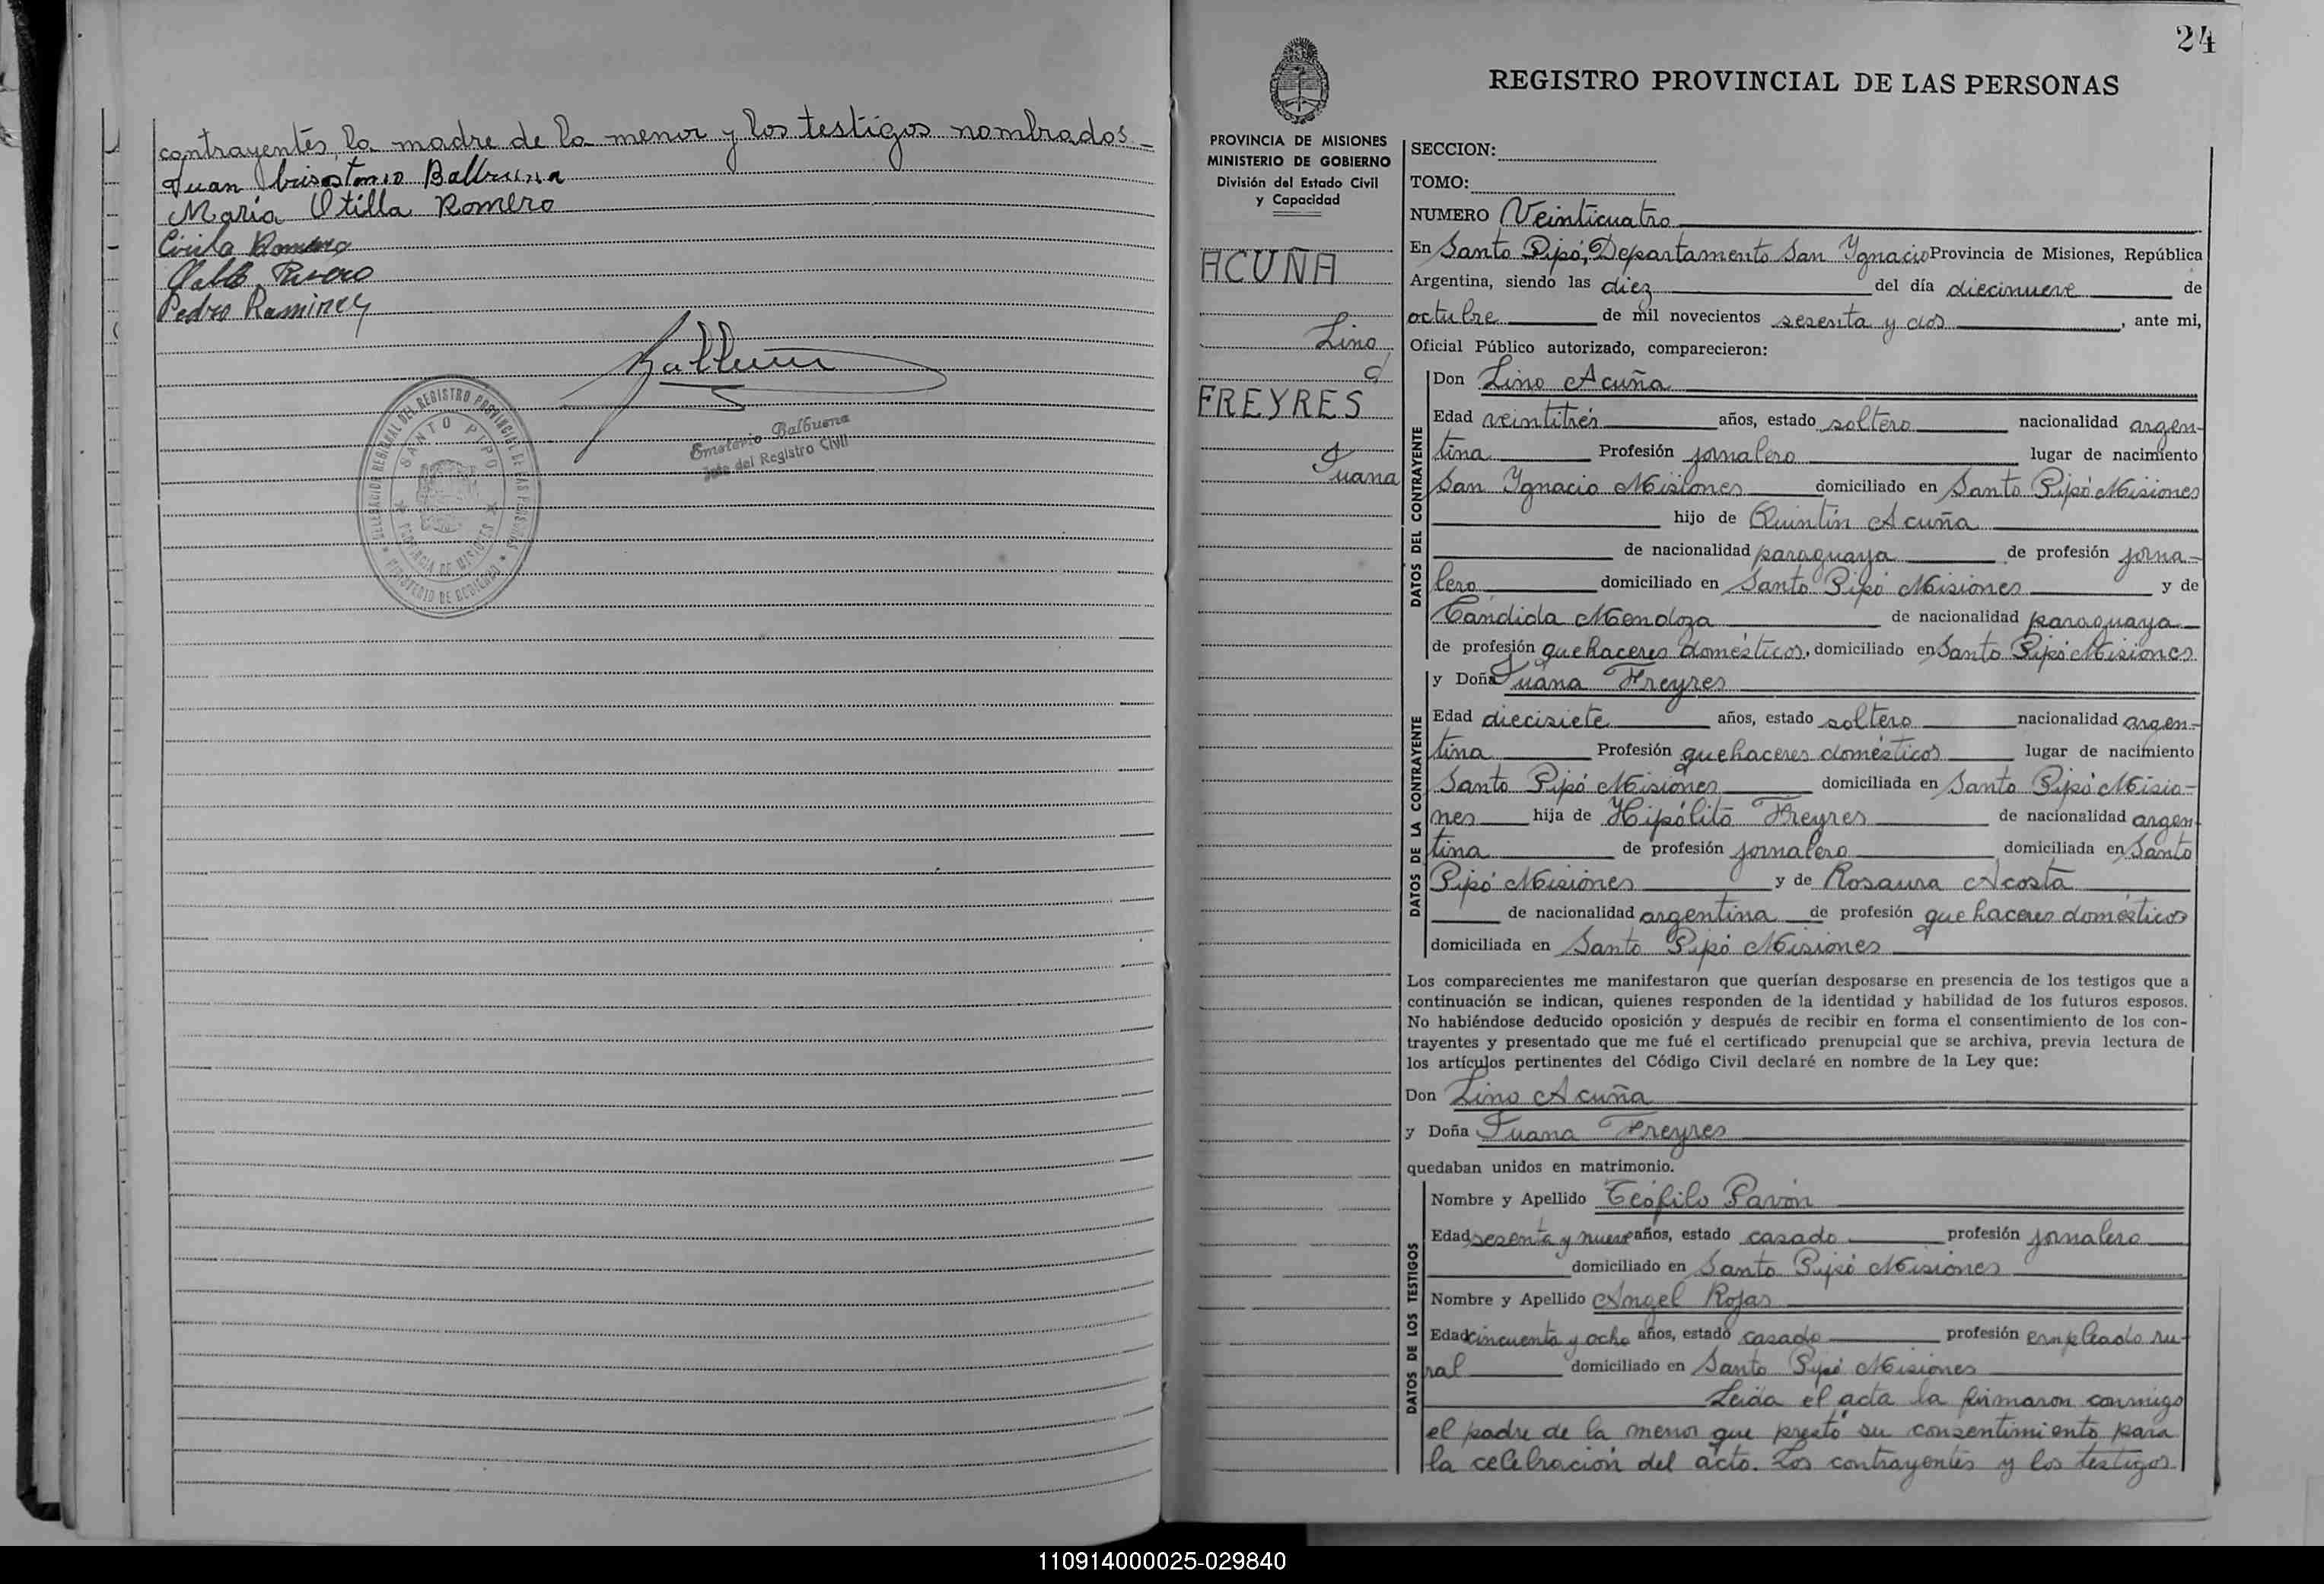 contrayentes, la madre de la menor y los testigos nombrados.-
Juan Crisostomo Balbuena
Maria Otilla Romero
Cirila Romero
Pedro Ramirez
Emeterio Balbuena
Jefe del Registro Civil
DELEGACION REGIONAL DEL REGISTRO PROVINCIAL DE LAS PERSONAS
SANTO PIPO
PROVINCIA DE MISIONES
MINISTERIO DE GOBIERNO
24
REGISTRO PROVINCIAL DE LAS PERSONAS
PROVINCIA DE MISIONES
MINISTERIO DE GOBIERNO
División del Estado Civil
y Capacidad
ACUÑA
Lino
c/
FREYRES
Juana
SECCION:
TOMO:
NUMERO Veinticuatro
En Santo Pipó, Departamento San Ygnacio Provincia de Misiones, República
Argentina, siendo las diez del día diecinueve de
octubre de mil novecientos sesenta y dos, ante mi,
Oficial Público autorizado, comparecieron:
DATOS DEL CONTRAYENTE
Don Lino Acuña
Edad veintitrés años, estado soltero nacionalidad argen-
tina Profesión jornalero lugar de nacimiento
San Ygnacio Misiones domiciliado en Santo Pipó Misiones
hijo de Quintín Acuña
de nacionalidad paraguaya de profesión jorna-
lero domiciliado en Santo Pipó Misiones y de
Cándida Mendoza de nacionalidad paraguaya
de profesión quehaceres domésticos, domiciliado en Santo Pipó Misiones
DATOS DE LA CONTRAYENTE
y Doña Juana Freyres
Edad diecisiete años, estado soltero nacionalidad argen-
tina Profesión quehaceres domésticos lugar de nacimiento
Santo Pipó Misiones domiciliada en Santo Pipó Misio-
nes hija de Hipólito Freyres de nacionalidad argen-
tina de profesión jornalero domiciliada en Santo
Pipó Misiones y de Rosaura Acosta
de nacionalidad argentina de profesión quehaceres domésticos
domiciliada en Santo Pipó Misiones
Los comparecientes me manifestaron que querían desposarse en presencia de los testigos que a
continuación se indican, quienes responden de la identidad y habilidad de los futuros esposos.
No habiéndose deducido oposición y después de recibir en forma el consentimiento de los con-
trayentes y presentado que me fué el certificado prenupcial que se archiva, previa lectura de
los artículos pertinentes del Código Civil declaré en nombre de la Ley que:
Don Lino Acuña
y Doña Juana Freyres
quedaban unidos en matrimonio.
DATOS DE LOS TESTIGOS
Nombre y Apellido Teófilo Pavón
Edad sesenta y nueve años, estado casado profesión jornalero
domiciliado en Santo Pipó Misiones
Nombre y Apellido Angel Rojas
Edad cincuenta y ocho años, estado casado profesión empleado ru-
ral domiciliado en Santo Pipó Misiones
Leída el acta la firmaron conmigo
el padre de la menor que prestó su consentimiento para
la celebración del acto. Los contrayentes y los testigos
110914000025-029840